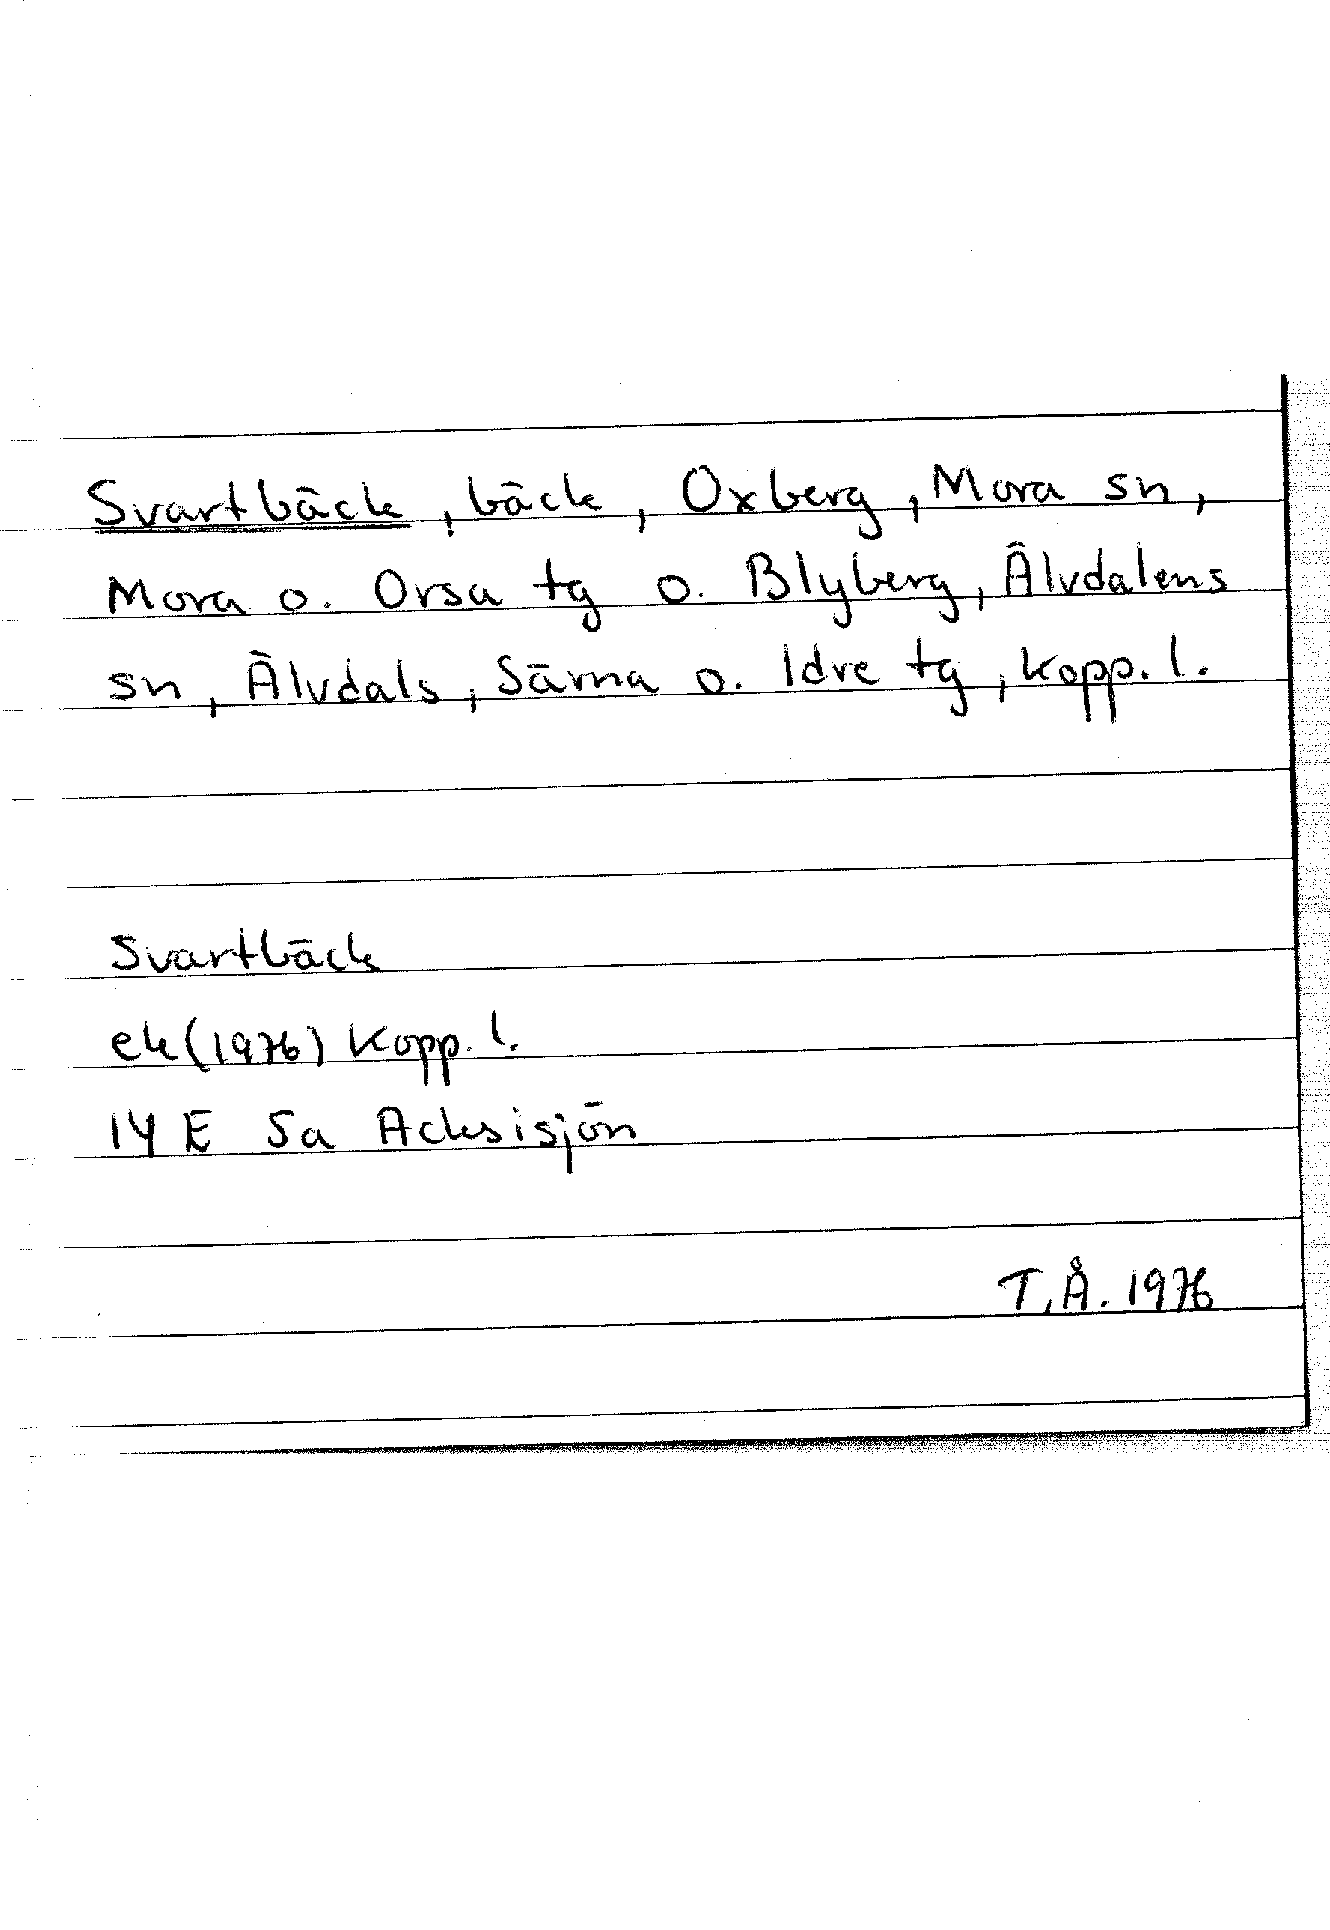 Svartbäck, bäck, Oxberg, Mora sn,
Mora o. Orsa tg o. Blyberg, Älvdalens
sn, Älvdals, Särna o. Idre tg, Kopp. l.
Svartbäck
ek (1976) Kopp. l.
14 E 5a Acksisjön
T.Å. 1976